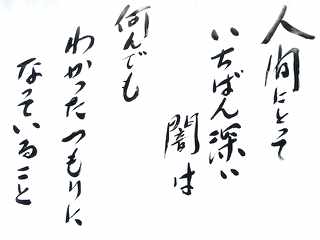 人間にとって
いちばん深い
闇は
何んでも
わかったつもりに
なっていること